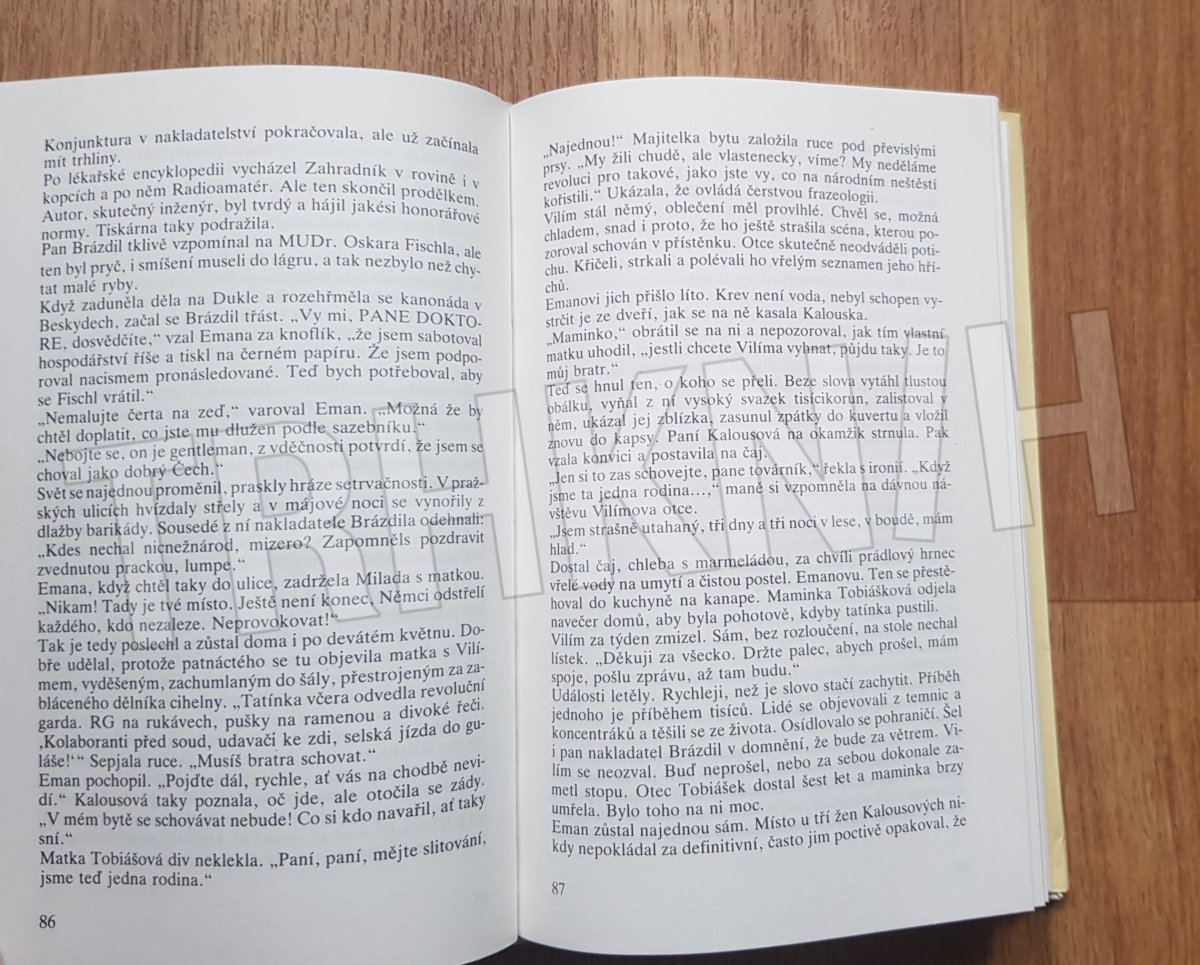 Konjunktura v nakladatelství pokračovala, ale už začínala
mít trhliny.
Po lékařské encyklopedii vycházel Zahradník v rovině i v
kopcích a po něm Radioamatér. Ale ten skončil prodělkem.
Autor, skutečný inženýr, byl tvrdý a hájil jakési honorářové
normy. Tiskárna taky podražila.
Pan Brázdil tklivě vzpomínal na MUDr. Oskara Fischla, ale
ten byl pryč, i smíšení museli do lágru, a tak nezbylo než chy-
tat malé ryby.
Když zaduněla děla na Dukle a rozehřměla se kanonáda v
Beskydech, začal se Brázdil třást. „Vy mi, PANE DOKTO-
RE, dosvědčíte,“ vzal Emana za knoflík, „že jsem sabotoval
hospodářství říše a tiskl na černém papíru. Že jsem podpo-
roval nacismem pronásledované. Teď bych potřeboval, aby
se Fischl vrátil.“
„Nemalujte čerta na zeď,“ varoval Eman. „Možná že by
chtěl doplatit, co jste mu dlužen podle sazebníku.“
„Nebojte se, on je gentleman, z vděčnosti potvrdí, že jsem se
choval jako dobrý Čech.“
Svět se najednou proměnil, praskly hráze setrvačnosti. V praž-
ských ulicích hvízdaly střely a v májové noci se vynořily z
dlažby barikády. Sousedé z ní nakladatele Brázdila odehnali:
„Kdes nechal nicnežnárod, mizero? Zapomněls pozdravit
zvednutou prackou, lumpe.“
Emana, když chtěl taky do ulice, zadržela Milada s matkou.
„Nikam! Tady je tvé místo. Ještě není konec, Němci odstřelí
každého, kdo nezaleze. Neprovokovat!“
Tak je tedy poslechl a zůstal doma i po devátém květnu. Do-
bře udělal, protože patnáctého se tu objevila matka s Vilí-
mem, vyděšeným, zachumlaným do šály, přestrojeným za za-
bláceného dělníka cihelny. „Tatínka včera odvedla revoluční
garda. RG na rukávech, pušky na ramenou a divoké řeči.
‚Kolaboranti před soud, udavači ke zdi, selská jízda do gu-
láše!‘“ Sepjala ruce. „Musíš bratra schovat.“
Eman pochopil. „Pojďte dál, rychle, ať vás na chodbě nevi-
dí.“ Kalousová taky poznala, oč jde, ale otočila se zády.
„V mém bytě se schovávat nebude! Co si kdo navařil, ať taky
sní.“
Matka Tobiášová div neklekla. „Paní, paní, mějte slitování,
jsme teď jedna rodina.“
86
„Najednou!“ Majitelka bytu založila ruce pod převislými
prsy. „My žili chudě, ale vlastenecky, víme? My neděláme
revoluci pro takové, jako jste vy, co na národním neštěstí
kořistili.“ Ukázala, že ovládá čerstvou frazeologii.
Vilím stál němý, oblečení měl provlhlé. Chvěl se, možná
chladem, snad i proto, že ho ještě strašila scéna, kterou po-
zoroval schován v přístěnku. Otce skutečně neodváděli poti-
chu. Křičeli, strkali a polévali ho vřelým seznamem jeho hří-
chů.
Emanovi jich přišlo líto. Krev není voda, nebyl schopen vy-
strčit je ze dveří, jak se na ně kasala Kalouska.
„Maminko,“ obrátil se na ni a nepozoroval, jak tím vlastní
matku uhodil, „jestli chcete Vilíma vyhnat, půjdu taky. Je to
můj bratr.“
Teď se hnul ten, o koho se přeli. Beze slova vytáhl tlustou
obálku, vyňal z ní vysoký svazek tisícikorun, zalistoval v
něm, ukázal jej zblízka, zasunul zpátky do kuvertu a vložil
znovu do kapsy. Paní Kalousová na okamžik strnula. Pak
vzala konvici a postavila na čaj.
„Jen si to zas schovejte, pane továrník,“ řekla s ironií. „Když
jsme ta jedna rodina...,“ maně si vzpomněla na dávnou ná-
vštěvu Vilímova otce.
„Jsem strašně utahaný, tři dny a tři noci v lese, v boudě, mám
hlad.“
Dostal čaj, chleba s marmeládou, za chvíli prádlový hrnec
vřelé vody na umytí a čistou postel. Emanovu. Ten se přestě-
hoval do kuchyně na kanape. Maminka Tobiášková odjela
navečer domů, aby byla pohotově, kdyby tatínka pustili.
Vilím za týden zmizel. Sám, bez rozloučení, na stole nechal
lístek. „Děkuji za všecko. Držte palec, abych prošel, mám
spoje, pošlu zprávu, až tam budu.“
Události letěly. Rychleji, než je slovo stačí zachytit. Příběh
jednoho je příběhem tisíců. Lidé se objevovali z temnic a
koncentráků a těšili se ze života. Osídlovalo se pohraničí. Šel
i pan nakladatel Brázdil v domnění, že bude za větrem. Vi-
lím se neozval. Buď neprošel, nebo za sebou dokonale za-
metl stopu. Otec Tobiášek dostal šest let a maminka brzy
umřela. Bylo toho na ni moc.
Eman zůstal najednou sám. Místo u tří žen Kalousových ni-
kdy nepokládal za definitivní, často jim poctivě opakoval, že
87
TRHKNIH